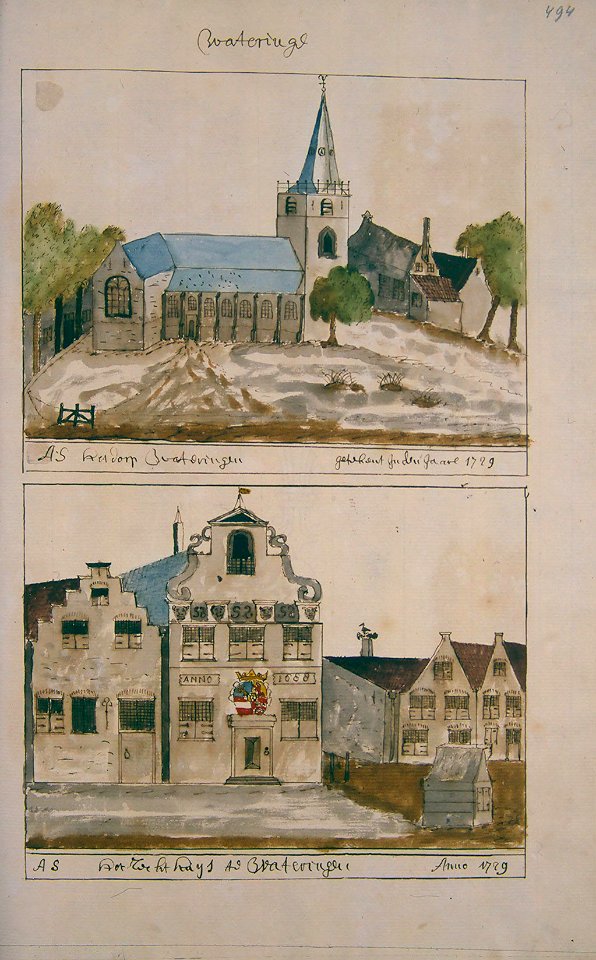 494
Wateringe
A:S Het dorp Wateringen getekent In den Jaare 1729
ANNO 1658
AS Het Rechthuys te Wateringen Anno 1729